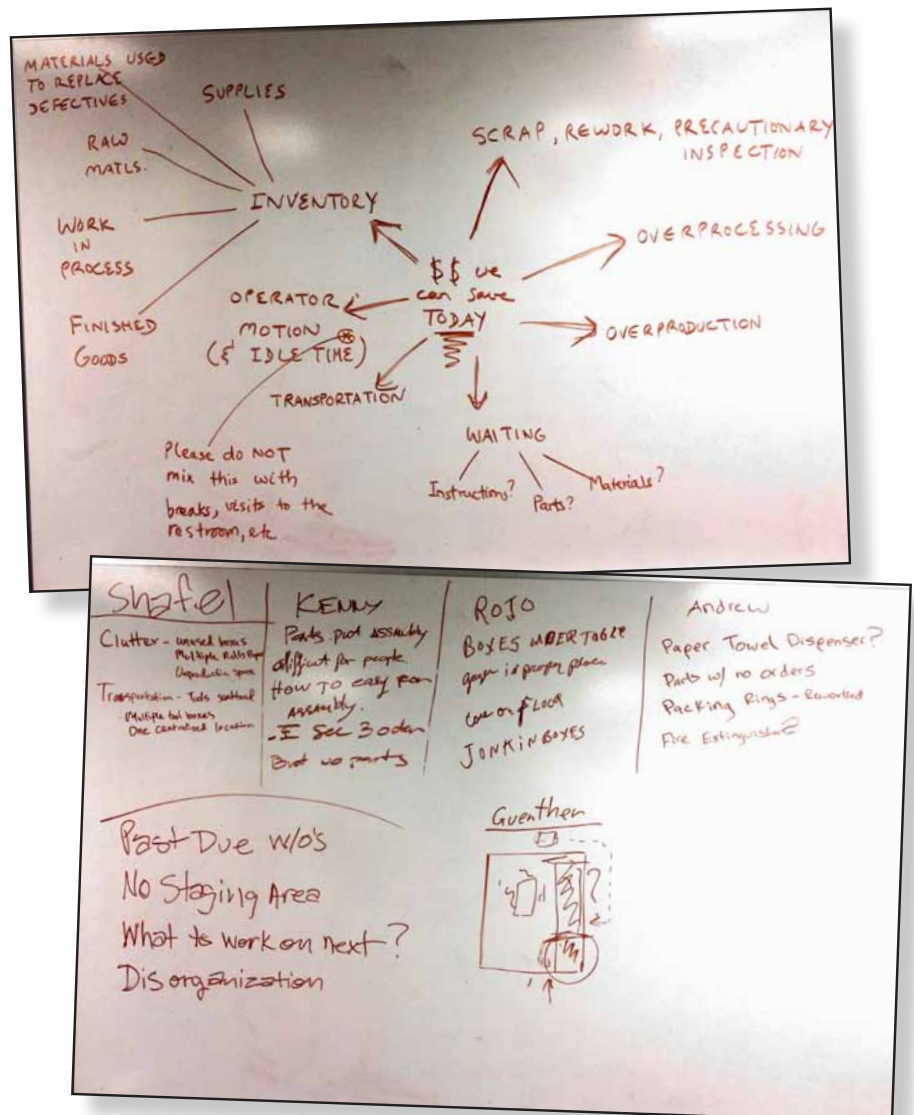 MATERIALS USED
TO REPLACE
DEFECTIVES
SUPPLIES
RAW
MATLS.
WORK
IN
PROCESS
FINISHED
GOODS
INVENTORY
SCRAP, REWORK, PRECAUTIONARY
INSPECTION
OVERPROCESSING
$$ we
can save
TODAY
OVERPRODUCTION
OPERATOR
MOTION
(& IDLE TIME)
TRANSPORTATION
WAITING
Instructions?
Parts?
Materials?
Please do NOT
mix this with
breaks, visits to the
restroom, etc
Shafel
Clutter - unused boxes
Multiple Rolls
space
Transportation - Tools scattered
- Multiple tool boxes
One centralized location
KENNY
Parts Assembly
difficult for people.
HOW TO easy for
ASSEMBLY.
- I See 3 oden
But no parts
ROJO
BOXES UNDER TABLE
in proper place
on FLOOR
JONK IN BOXES
Andrew
Paper Towel Dispenser?
Parts w/ no orders
Packing Rings - Reworked
Fire Extinguisher?
Past Due w/o's
No Staging Area
What to work on next?
Disorganization
Guenther
?